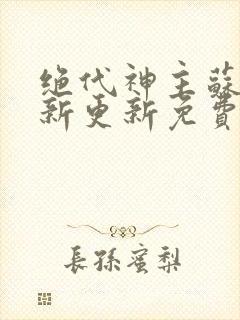 绝代神主蘇
新更新免費
長孫蜜梨